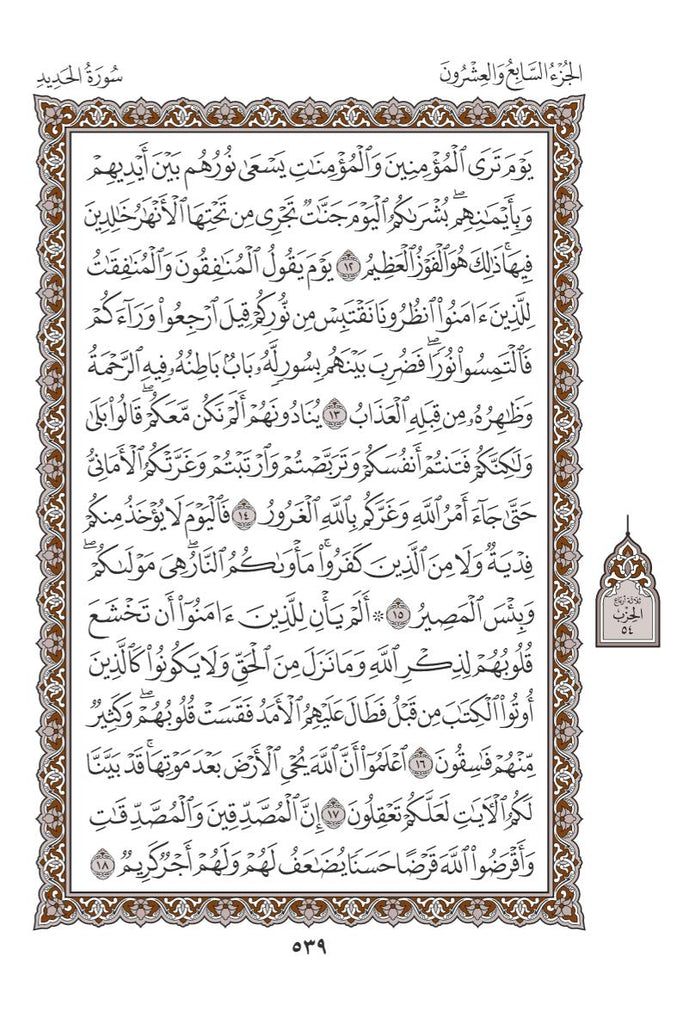 الجُزْءُ السَّابِعُ وَالعِشْرُونَ
سُورَةُ الحَدِيدِ
يَوْمَ تَرَى ٱلْمُؤْمِنِينَ وَٱلْمُؤْمِنَٰتِ يَسْعَىٰ نُورُهُم بَيْنَ أَيْدِيهِمْ
وَبِأَيْمَٰنِهِمۖ بُشْرَىٰكُمُ ٱلْيَوْمَ جَنَّٰتٌ تَجْرِى مِن تَحْتِهَا ٱلْأَنْهَٰرُ خَٰلِدِينَ
فِيهَاۚ ذَٰلِكَ هُوَ ٱلْفَوْزُ ٱلْعَظِيمُ ١٢ يَوْمَ يَقُولُ ٱلْمُنَٰفِقُونَ وَٱلْمُنَٰفِقَٰتُ
لِلَّذِينَ ءَامَنُوا۟ ٱنظُرُونَا نَقْتَبِسْ مِن نُّورِكُمْ قِيلَ ٱرْجِعُوا۟ وَرَآءَكُمْ
فَٱلْتَمِسُوا۟ نُورًاۖ فَضُرِبَ بَيْنَهُم بِسُورٍ لَّهُۥ بَابٌۢ بَاطِنُهُۥ فِيهِ ٱلرَّحْمَةُ
وَظَٰهِرُهُۥ مِن قِبَلِهِ ٱلْعَذَابُ ١٣ يُنَادُونَهُمْ أَلَمْ نَكُن مَّعَكُمْۖ قَالُوا۟ بَلَىٰ
وَلَٰكِنَّكُمْ فَتَنتُمْ أَنفُسَكُمْ وَتَرَبَّصْتُمْ وَٱرْتَبْتُمْ وَغَرَّتْكُمُ ٱلْأَمَانِىُّ
حَتَّىٰ جَآءَ أَمْرُ ٱللَّهِ وَغَرَّكُم بِٱللَّهِ ٱلْغَرُورُ ١٤ فَٱلْيَوْمَ لَا يُؤْخَذُ مِنكُمْ
فِدْيَةٌ وَلَا مِنَ ٱلَّذِينَ كَفَرُوا۟ۚ مَأْوَىٰكُمُ ٱلنَّارُۖ هِىَ مَوْلَىٰكُمْۖ
وَبِئْسَ ٱلْمَصِيرُ ١٥ ۞ أَلَمْ يَأْنِ لِلَّذِينَ ءَامَنُوٓا۟ أَن تَخْشَعَ
قُلُوبُهُمْ لِذِكْرِ ٱللَّهِ وَمَا نَزَلَ مِنَ ٱلْحَقِّ وَلَا يَكُونُوا۟ كَٱلَّذِينَ
أُوتُوا۟ ٱلْكِتَٰبَ مِن قَبْلُ فَطَالَ عَلَيْهِمُ ٱلْأَمَدُ فَقَسَتْ قُلُوبُهُمْۖ وَكَثِيرٌ
مِّنْهُمْ فَٰسِقُونَ ١٦ ٱعْلَمُوٓا۟ أَنَّ ٱللَّهَ يُحْىِ ٱلْأَرْضَ بَعْدَ مَوْتِهَاۚ قَدْ بَيَّنَّا
لَكُمُ ٱلْءَايَٰتِ لَعَلَّكُمْ تَعْقِلُونَ ١٧ إِنَّ ٱلْمُصَّدِّقِينَ وَٱلْمُصَّدِّقَٰتِ
وَأَقْرَضُوا۟ ٱللَّهَ قَرْضًا حَسَنًا يُضَٰعَفُ لَهُمْ وَلَهُمْ أَجْرٌ كَرِيمٌ ١٨
ثَلَاثَةُ أَرْبَاعِ
الحِزْبِ
٥٤
٥٣٩